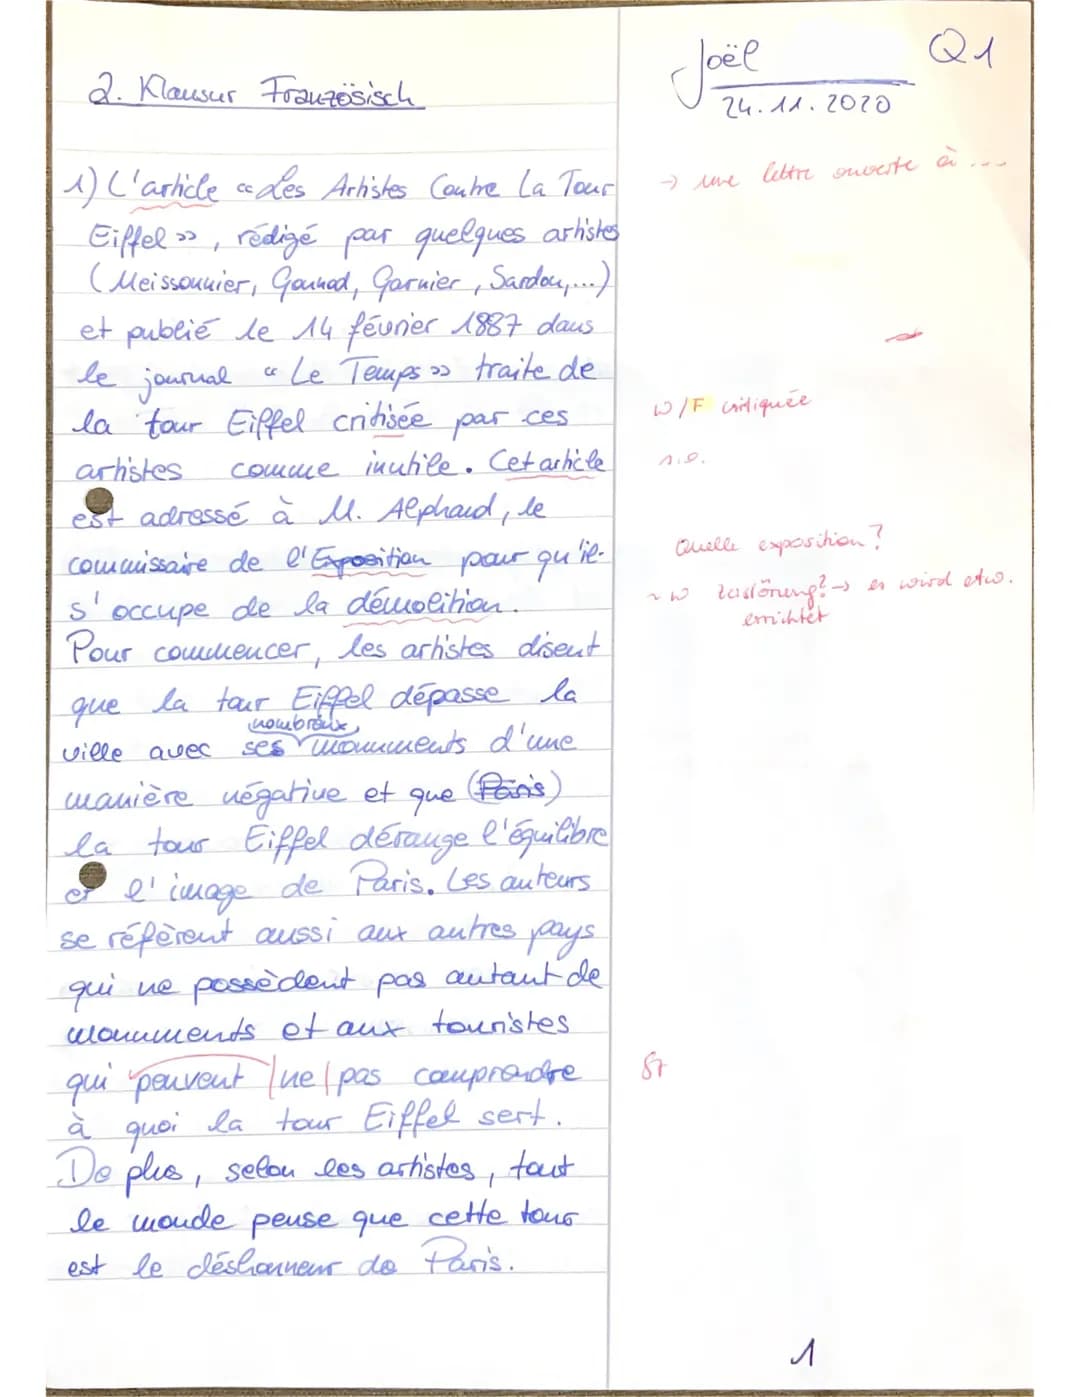 Joël Q1
2. Klausur Französisch
24.11.2020
1) L'article « Les Artistes Contre La Tour
→ une lettre ouverte à ...
Eiffel », rédigé par quelques artistes
(Meissonnier, Gounod, Garnier, Sardou,...)
et publié le 14 février 1887 dans
le journal « Le Temps » traite de
la tour Eiffel critisée par ces
W/F critiquée
artistes comme inutile. Cet article
s.o.
est adressé à M. Alphand, le
commissaire de l'Exposition pour qu'il
Quelle exposition?
s'occupe de la démolition.
~W Zerstörung? → es wird etw.
errichtet
Pour commencer, les artistes disent
que la tour Eiffel dépasse la
nombreux
ville avec ses monuments d'une
manière négative et que (Paris)
la tour Eiffel dérange l'équilibre
et l'image de Paris. Les auteurs
se réfèrent aussi aux autres pays
qui ne possèdent pas autant de
monuments et aux touristes
qui peuvent ne pas comprendre
St
à quoi la tour Eiffel sert.
De plus, selon les artistes, tout
le monde pense que cette tour
est le déshonneur de Paris.
1